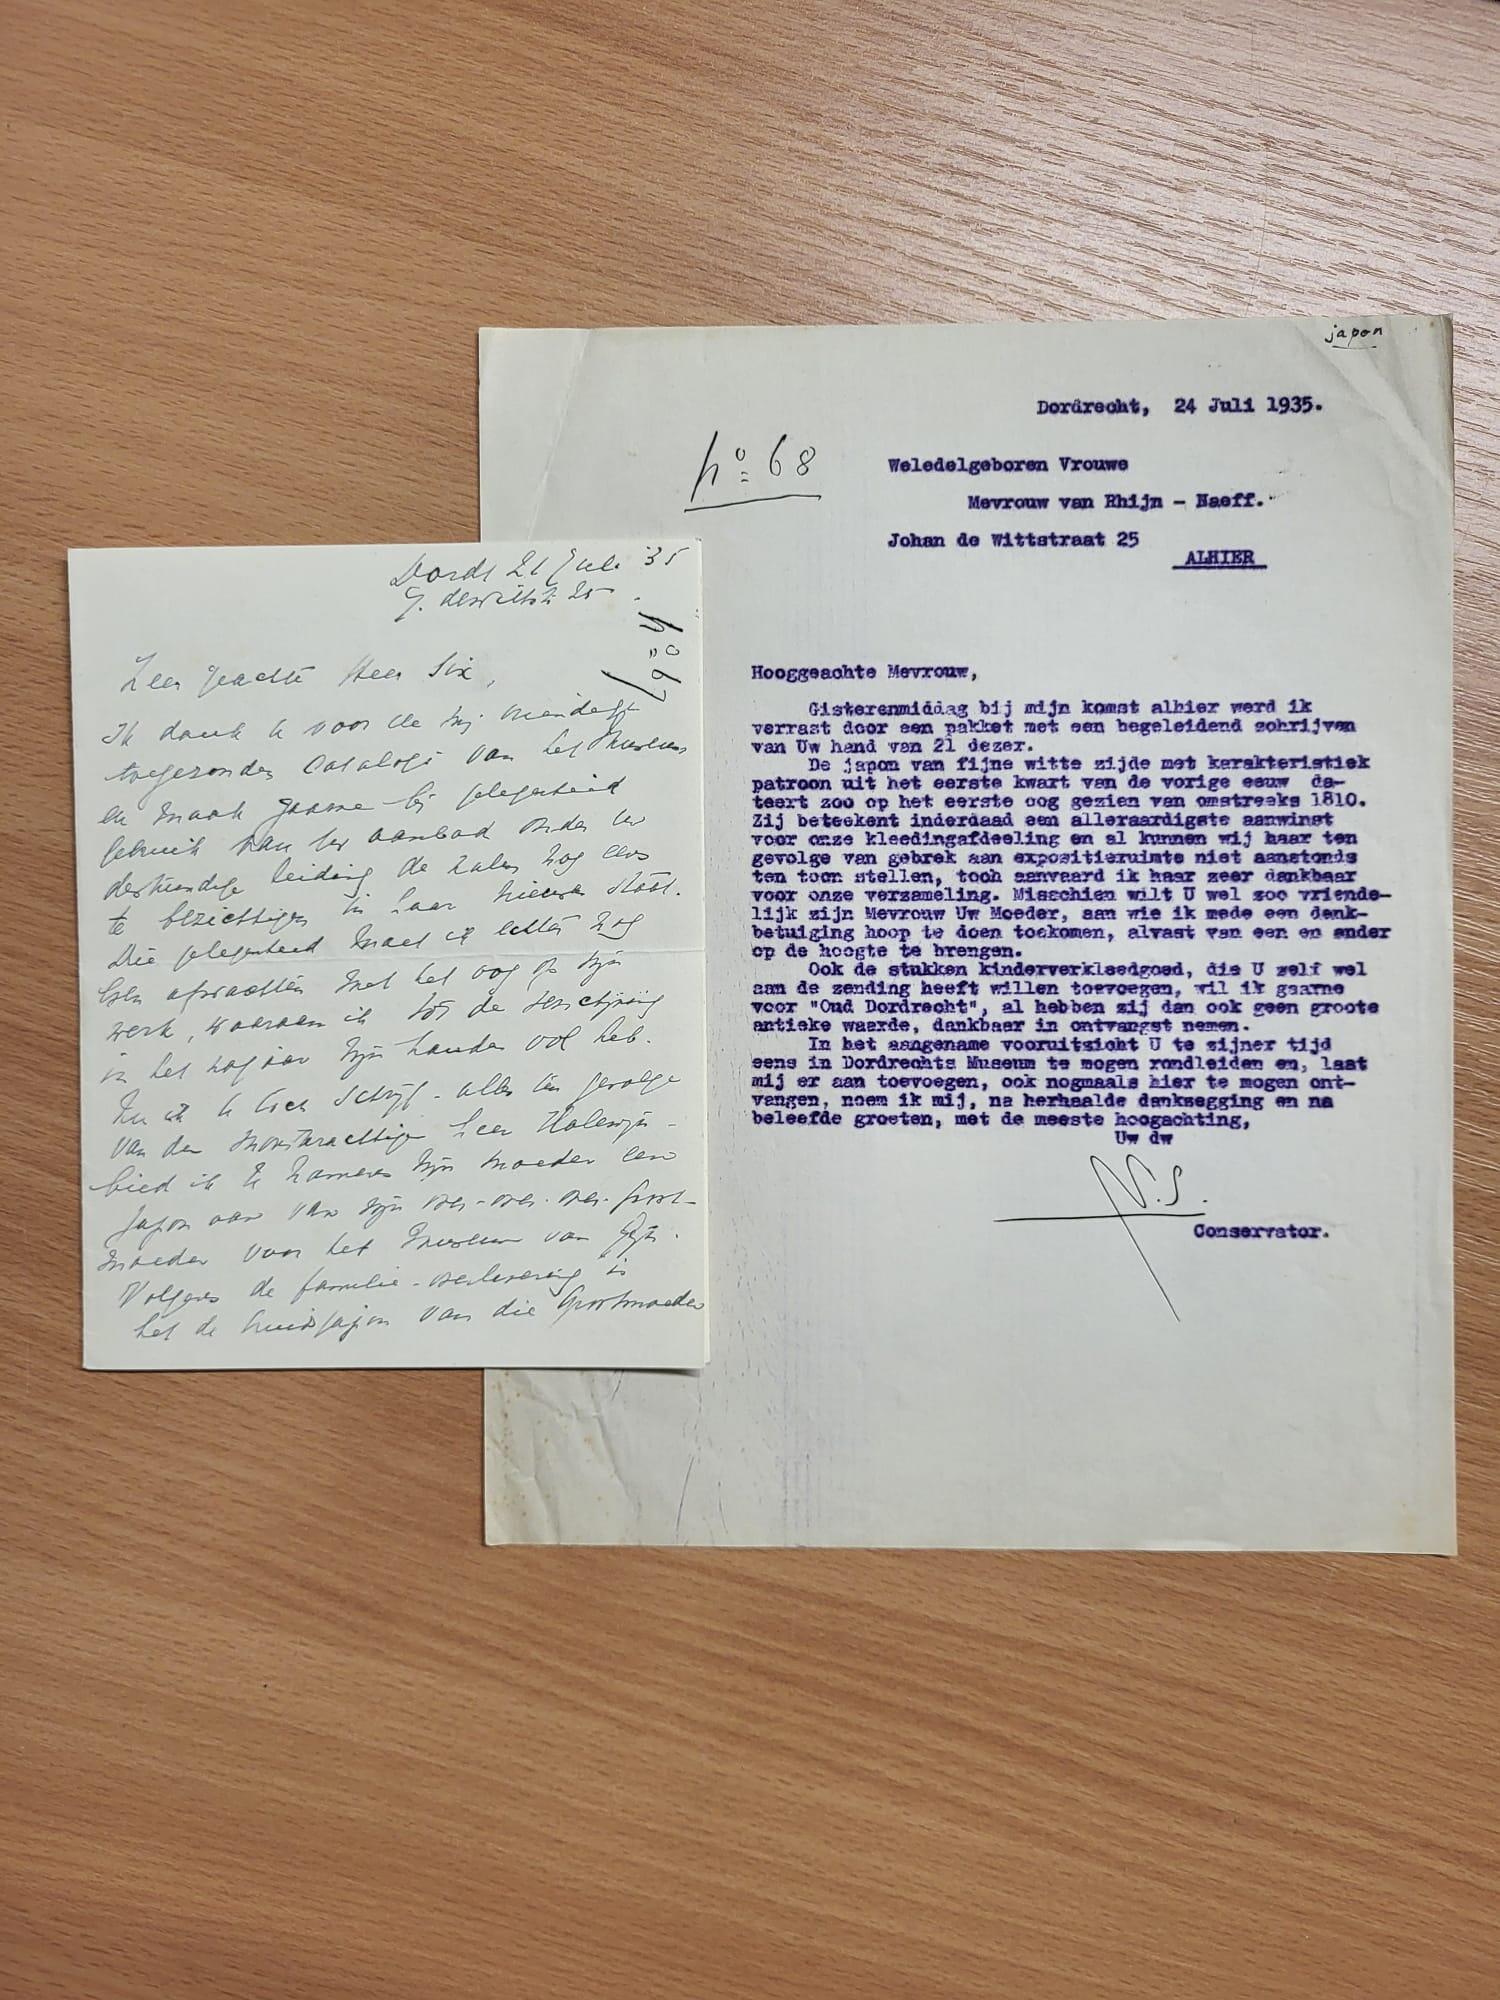 Dordt 21 Juli '35
J. de Wittstr 25.
no 67
Zeer geachte Heer Six,
Ik dank U voor de mij vriendelijk
toegezonden Catalogi van het Museum
en maak gaarne bij gelegenheid
gebruik van Uw aanbod onder Uw
deskundige leiding de zalen nog eens
te bezichtigen in haar nieuwe staat.
Die gelegenheid moet ik echter nog
even afwachten met het oog op mijn
werk, waaraan ik tot de verschijning
in het najaar mijn handen vol heb.
Nu ik U toch schrijf - alles ten gevolge
van den heer
bied ik U namens mijn moeder een
japon aan van mijn over-over-over-groot-
moeder voor het Museum van Gijn.
Volgens de familie-overlevering is
het de bruidsjapon van die Grootmoeder
japon
Dordrecht, 24 Juli 1935.
no 68
Weledelgeboren Vrouwe
Mevrouw van Rhijn - Naeff.
Johan de Wittstraat 25
ALHIER
Hooggeachte Mevrouw,
Gisterenmiddag bij mijn komst alhier werd ik
verrast door een pakket met een begeleidend schrijven
van Uw hand van 21 dezer.
De japon van fijne witte zijde met karakteristiek
patroon uit het eerste kwart van de vorige eeuw da-
teert zoo op het eerste oog gezien van omstreeks 1810.
Zij beteekent inderdaad een alleraardigste aanwinst
voor onze kleedingafdeeling en al kunnen wij haar ten
gevolge van gebrek aan expositieruimte niet aanstonds
ten toon stellen, toch aanvaard ik haar zeer dankbaar
voor onze verzameling. Misschien wilt U wel zoo vriende-
lijk zijn Mevrouw Uw Moeder, aan wie ik mede een dank-
betuiging hoop te doen toekomen, alvast van een en ander
op de hoogte te brengen.
Ook de stukken kinderverkleedgoed, die U zelf wel
aan de zending heeft willen toevoegen, wil ik gaarne
voor "Oud Dordrecht", al hebben zij dan ook geen groote
antieke waarde, dankbaar in ontvangst nemen.
In het aangename vooruitzicht U te zijner tijd
eens in Dordrechts Museum te mogen rondleiden en, laat
mij er aan toevoegen, ook nogmaals hier te mogen ont-
vangen, noem ik mij, na herhaalde dankzegging en na
beleefde groeten, met de meeste hoogachting,
Uw dw
N.S.
Conservator.